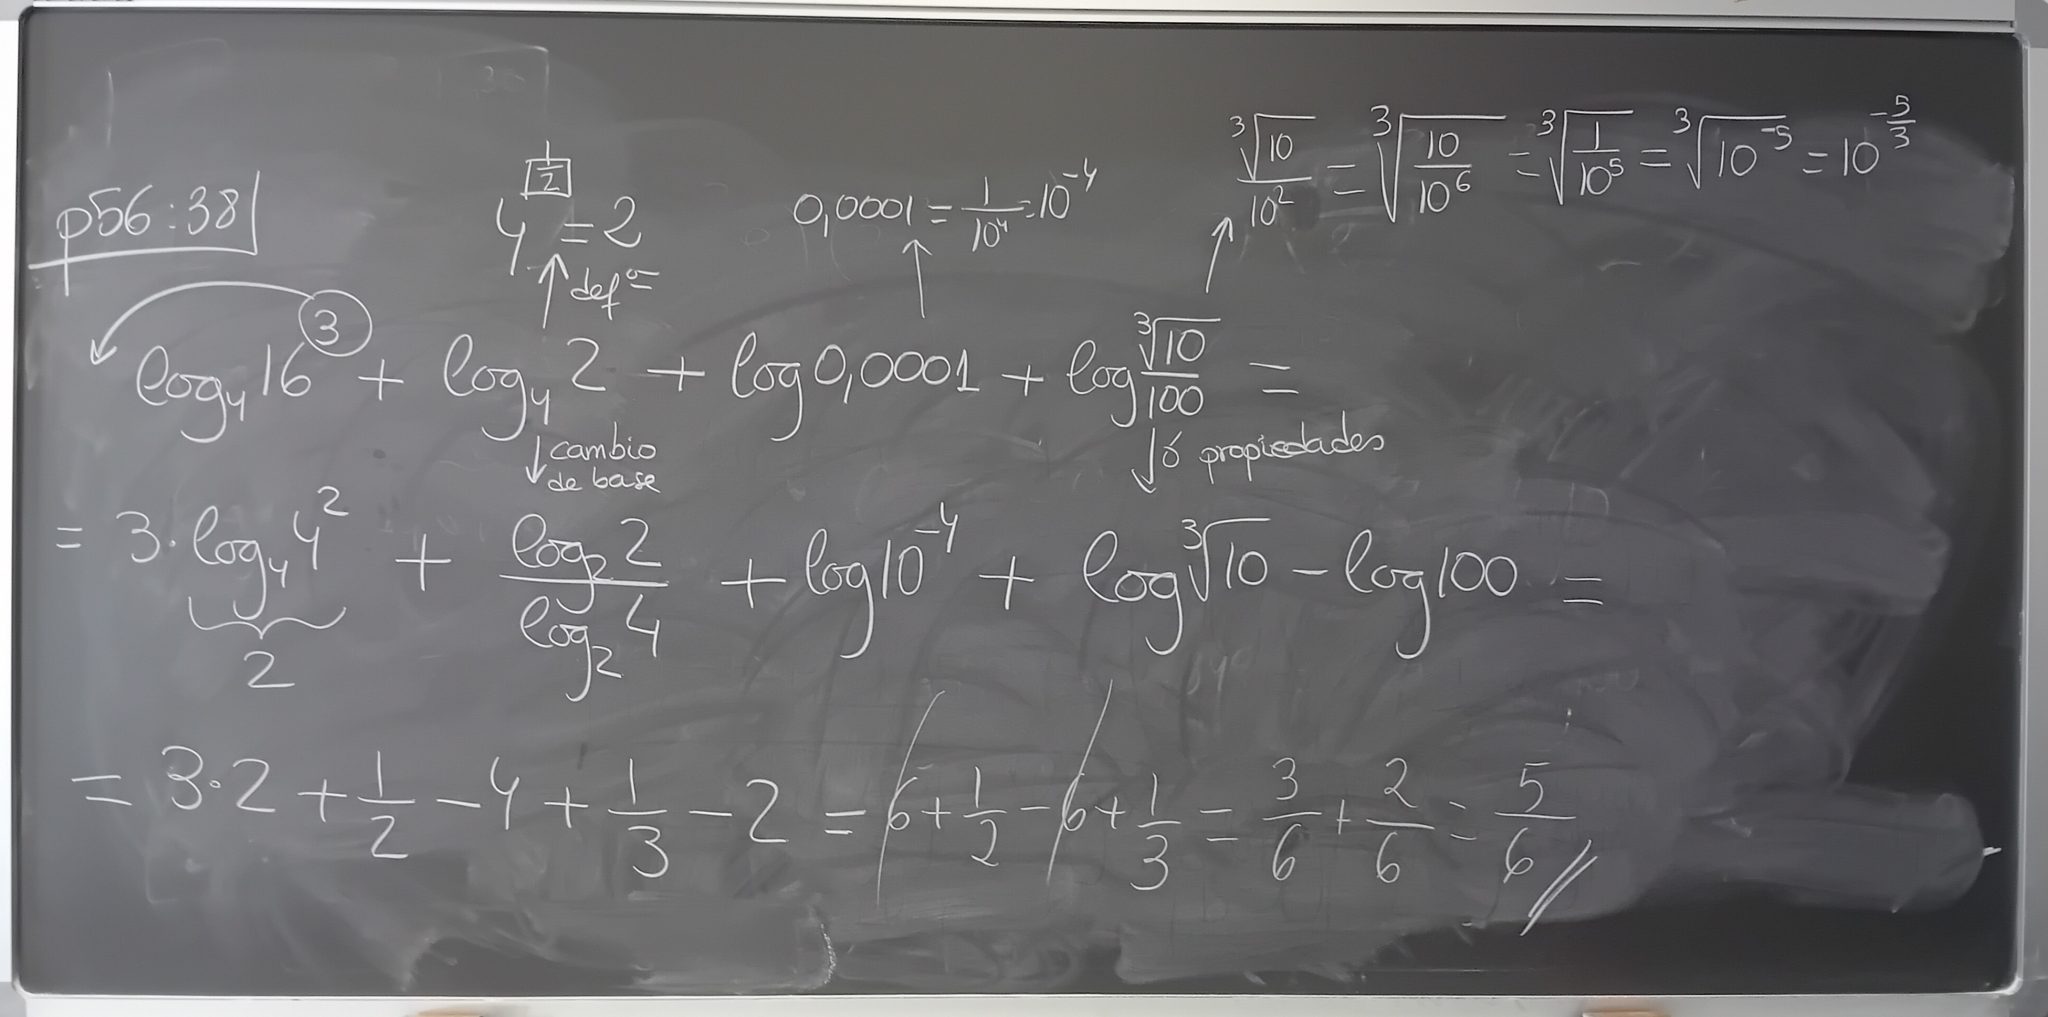 p56:38
4^{1/2} = 2
defº
0,0001 = 1/10^4 = 10^{-4}
∛10/10^2 = ∛(10/10^6) = ∛(1/10^5) = ∛(10^{-5}) = 10^{-5/3}
log_4 16^3 + log_4 2 + log 0,0001 + log ∛10/100 =
cambio
de base
ó propiedades
= 3·log_4 4^2 + log_2 2/log_2 4 + log 10^{-4} + log ∛10 - log 100 =
2
= 3·2 + 1/2 - 4 + 1/3 - 2 = 6 + 1/2 - 6 + 1/3 = 3/6 + 2/6 = 5/6 //